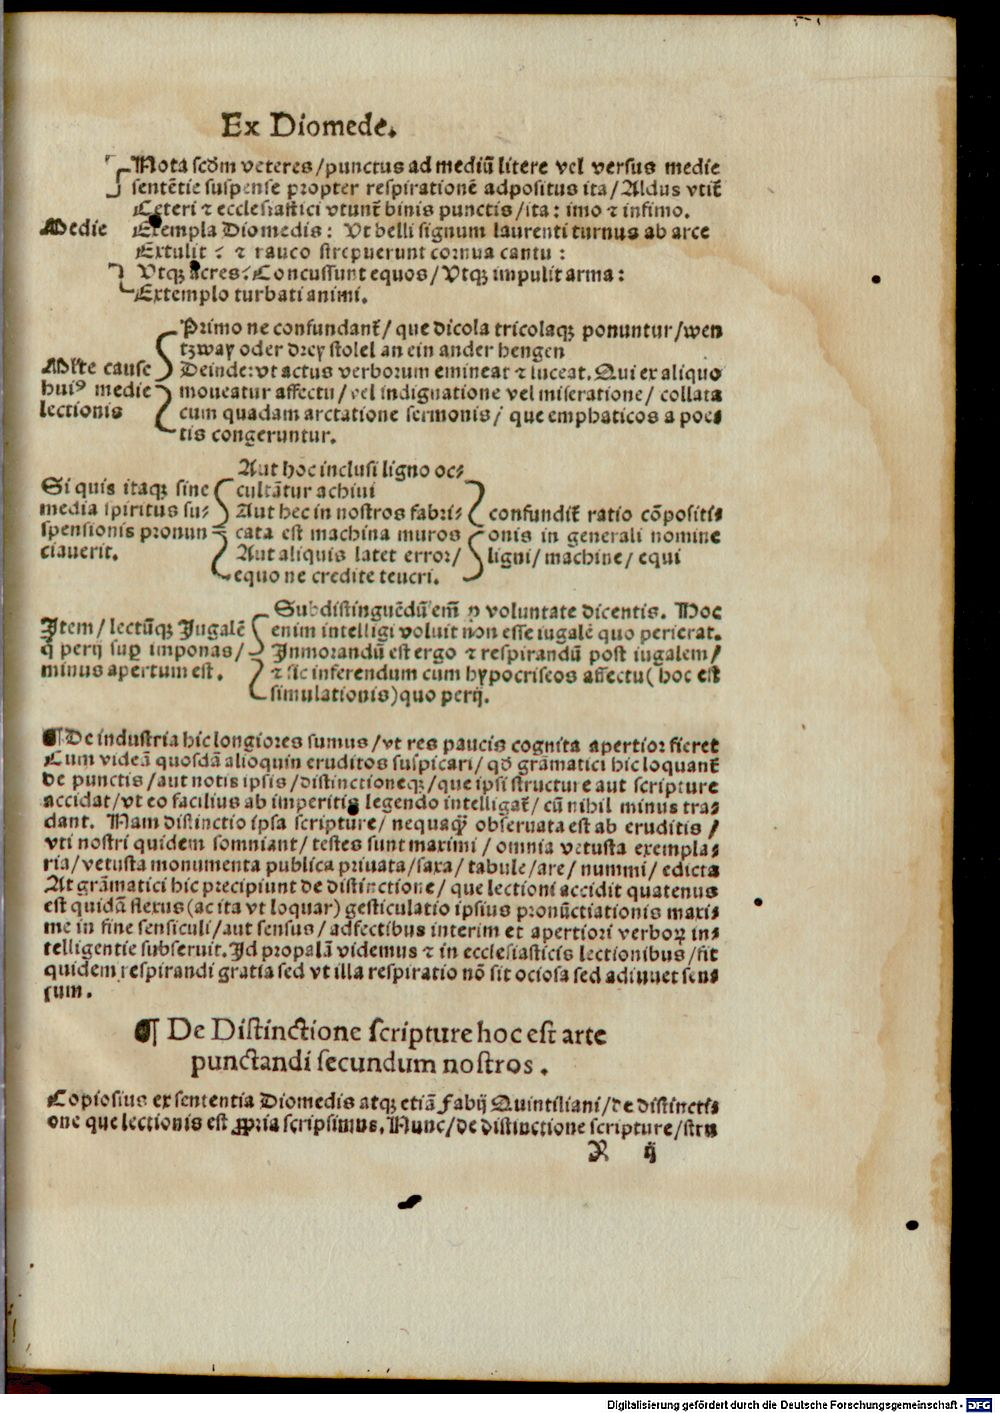 Ex Diomede.
Nota scđm veteres/punctus ad mediū litere vel versus medie
sentētie suspense propter respirationē adpositus ita/Aldus vtit᷑
Ceteri ⁊ ecclesiastici vtunt᷑ binis punctis/ita: imo ⁊ infimo.
Medie
Exempla Diomedis: Vt belli signum laurenti turnus ab arce
Extulit: ⁊ rauco strepuerunt cornua cantu:
Vtqꝫ acres: Concussunt equos/Vtqꝫ impulit arma:
Extemplo turbati animi.
Primo ne confundant᷑/que dicola tricolaqꝫ ponuntur/wen
tzway oder drey stolel an ein ander hengen
Deinde:vt actus verborum emineat ⁊ luceat. Qui ex aliquo
moueatur affectu/vel indignatione vel miseratione/collata
cum quadam arctatione sermonis/que emphaticos a poe-
tis congeruntur.
cause
huiꝰ medie
lectionis
Si quis itaqꝫ sine
media spiritus su-
spensionis pronun
ciauerit.
Aut hoc inclusi ligno oc-
cultātur achiui
Aut hec in nostros fabri-
cata est machina muros
Aut aliquis latet error/
equo ne credite teucri.
confundit᷑ ratio cōpositi-
onis in generali nomine
ligni/machine/equi
Item/lectūqꝫ Iugalē
q̄ perij suꝑ imponas/
minus apertum est.
Subdistinguēdū em̄ ꝓ voluntate dicentis. Hoc
enim intelligi voluit non esse iugalē quo perierat.
Inmorandū est ergo ⁊ respirandū post iugalem/
⁊ sic inferendum cum hypocriseos affectu(hoc est
simulationis)quo perij.
¶De industria hic longiores sumus/vt res paucis cognita apertior fieret
Cum videā quosdā alioquin eruditos suspicari/qđ grāmatici hic loquant᷑
de punctis/aut notis ipsis/distinctioneqꝫ/que ipsi structure aut scripture
accidat/vt eo facilius ab imperitis legendo intelligat᷑/cū nihil minus tra-
dant. Nam distinctio ipsa scripture/nequaqꝫ̄ obseruata est ab eruditis/
vti nostri quidem somniant/testes sunt maximi/omnia vetusta exempla-
ria/vetusta monumenta publica priuata/saxa/tabule/are/nummi/edicta
At grāmatici hic precipiunt de distinctione/que lectioni accidit quatenus
est quidā flexus(ac ita vt loquar)gesticulatio ipsius pronūctiationis maxi-
me in fine sensiculi/aut sensus/adfectibus interim et apertiori verboꝝ in-
telligentie subseruit. Id propalā videmus ⁊ in ecclesiasticis lectionibus/fit
quidem respirandi gratia sed vt illa respiratio nō sit ociosa sed adiuuet sen-
sum.
¶ De Distinctione scripture hoc est arte
punctandi secundum nostros.
Copiosius ex sententia Diomedis atqꝫ etiā Fabij Quintiliani/de distincti-
one que lectionis est ꝓpria scripsimus. Nunc/de distinctione scripture/stru
ij
Digitalisierung gefördert durch die Deutsche Forschungsgemeinschaft - DFG